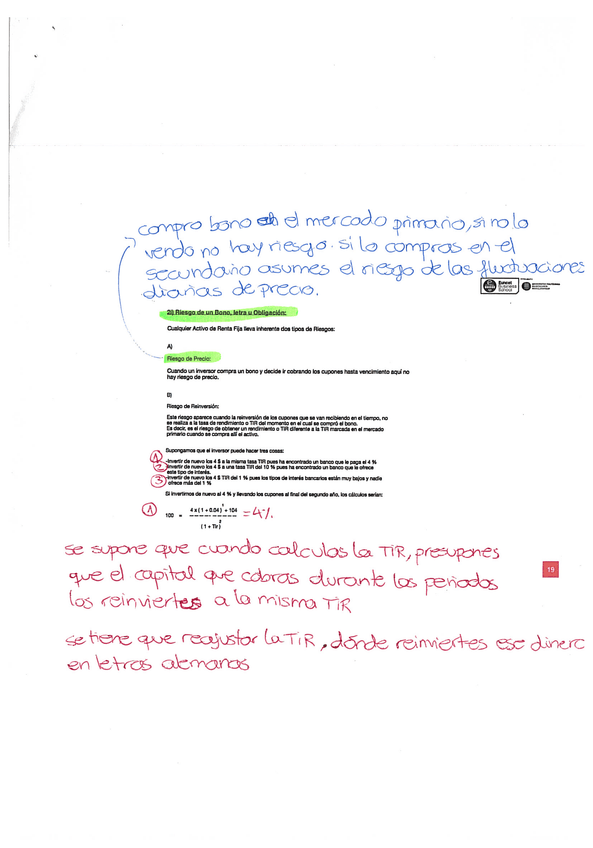 compro bono en el mercado primario, si no lo
vendo no hay riesgo. si lo compras en el
secundario asumes el riesgo de las fluctuaciones
diarias de precio.
Euncet
Business
School
2i) Riesgo de un Bono, letra u Obligación:
Cualquier Activo de Renta Fija lleva inherente dos tipos de Riesgos:
A)
Riesgo de Precio:
Cuando un inversor compra un bono y decide ir cobrando los cupones hasta vencimiento aquí no
hay riesgo de precio.
B)
Riesgo de Reinversión:
Este riesgo aparece cuando la reinversión de los cupones que se van recibiendo en el tiempo, no
se realiza a la tasa de rendimiento o TIR del momento en el cual se compró el bono.
Es decir, es el riesgo de obtener un rendimiento o TIR diferente a la TIR marcada en el mercado
primario cuando se compra allí el activo.
Supongamos que el inversor puede hacer tres cosas:
1 -Invertir de nuevo los 4 $ a la misma tasa TIR pues ha encontrado un banco que le paga el 4 %
2 -Invertir de nuevo los 4 $ a una tasa TIR del 10 % pues ha encontrado un banco que le ofrece
este tipo de interés.
3 -Invertir de nuevo los 4 $ TIR del 1 % pues los tipos de interés bancarios están muy bajos y nadie
ofrece más del 1 %
Si invertimos de nuevo al 4 % y llevando los cupones al final del segundo año, los cálculos serían:
1
1 4 x ( 1 + 0.04 ) + 104
100 = --------------------- = 4%
2
( 1 + Tir )
se supone que cuando calculas la TIR, presupones
que el capital que cobras durante los periodos
los reinviertes a la misma TIR
19
se tiene que reajustar la TIR, dónde reinviertes ese dinero
en letras alemanas